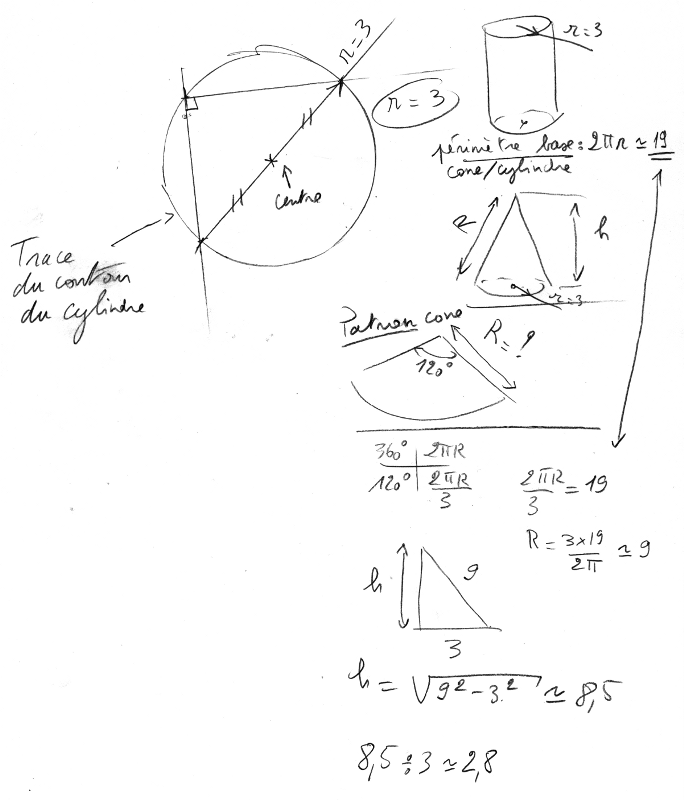 r = 3
r = 3
centre
Trace
du contour
du cylindre
r = 3
périmètre base : 2πr ≃ 19
cone/cylindre
R
h
r = 3
Patron cone
R = ?
120°
360° | 2πR
120° | 2πR/3
2πR/3 = 19
R = 3×19/2π ≃ 9
h
9
3
h = √9² - 3² ≃ 8,5
8,5 ÷ 3 ≃ 2,8